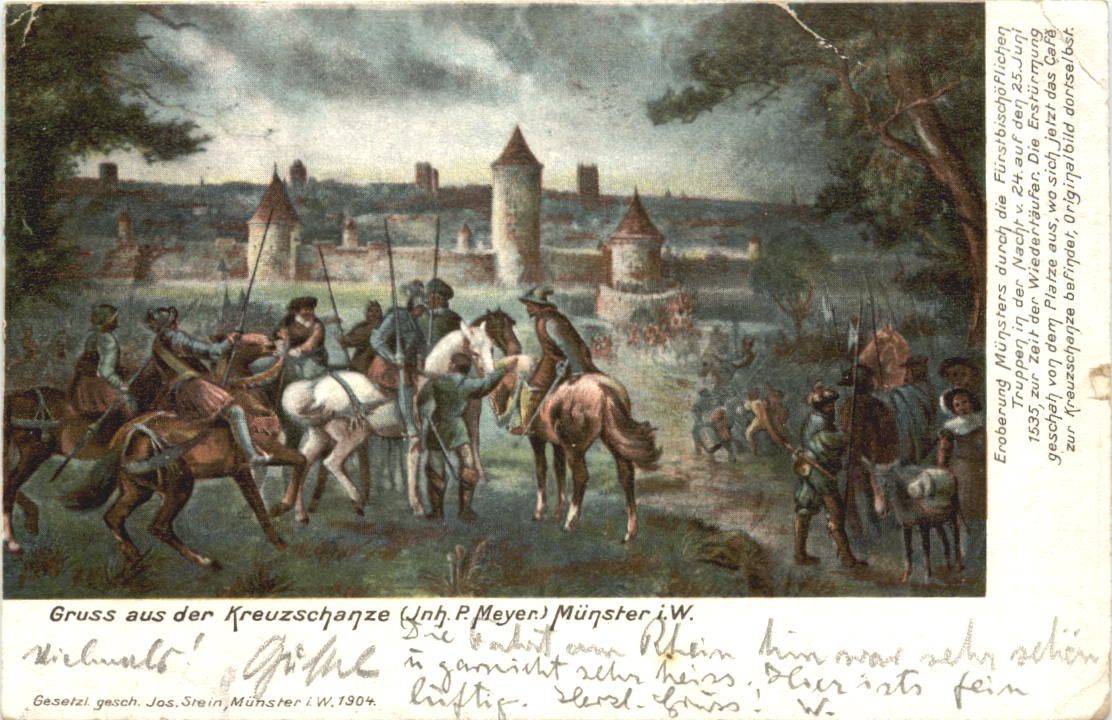 Eroberung Münsters durch die Fürstbischöflichen
Truppen in der Nacht v. 24. auf den 25. Juni
1535, zur Zeit der Wiedertäufer. Die Erstürmung
geschah von dem Platze aus, wo sich jetzt das Café
zur Kreuzschanze befindet, Originalbild dortselbst.
Gruss aus der Kreuzschanze (Jnh. P. Meyer.) Münster i. W.
vielmals! Grüsse
Die am Rhein hin war sehr schön
u garnicht sehr heiss. Hier ists fein
luftig. Herzl. Gruss! W.
Gesetzl. gesch. Jos. Stein, Münster i. W. 1904.